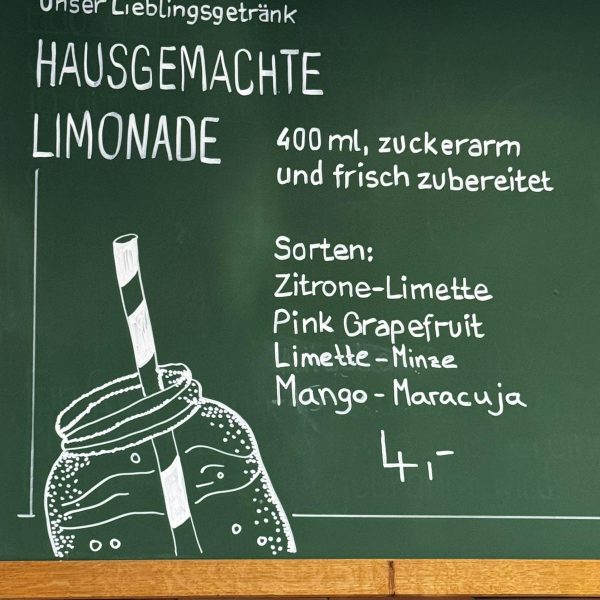 Unser Lieblingsgetränk
HAUSGEMACHTE
LIMONADE
400 ml, zuckerarm
und frisch zubereitet
Sorten:
Zitrone-Limette
Pink Grapefruit
Limette-Minze
Mango-Maracuja
4,-